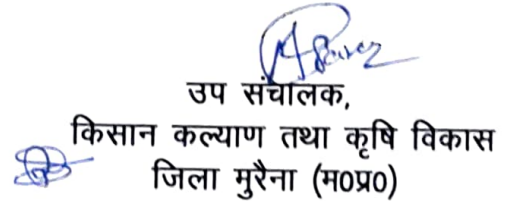 उप संचालक,
किसान कल्याण तथा कृषि विकास
जिला मुरैना (म0प्र0)